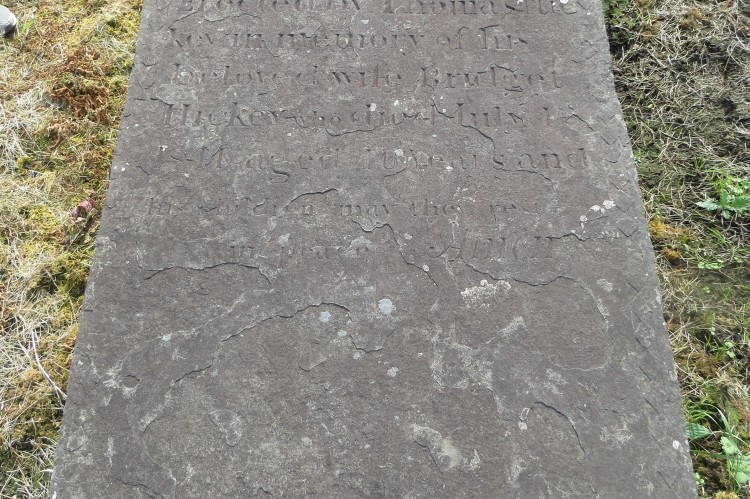 Erected by Thomas Hic
key in memory of his
beloved wife Bridget
Hickey who died July
aged years and
his children may they res
in peace AMEN